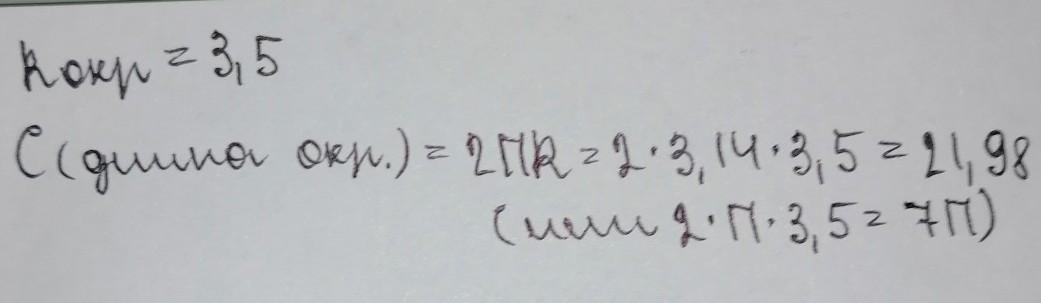 R окр = 3,5
C (длина окр.) = 2ПR = 2·3,14·3,5 = 21,98
(или 2·П·3,5 = 7П)